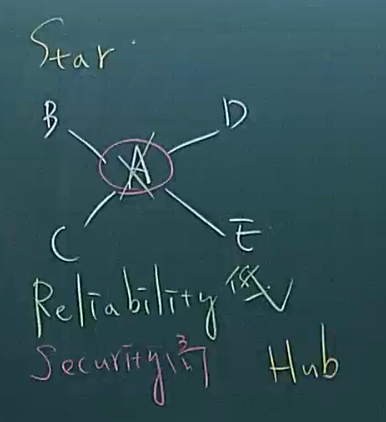 Star
B D
A
C E
Reliability 低
Security
Hub